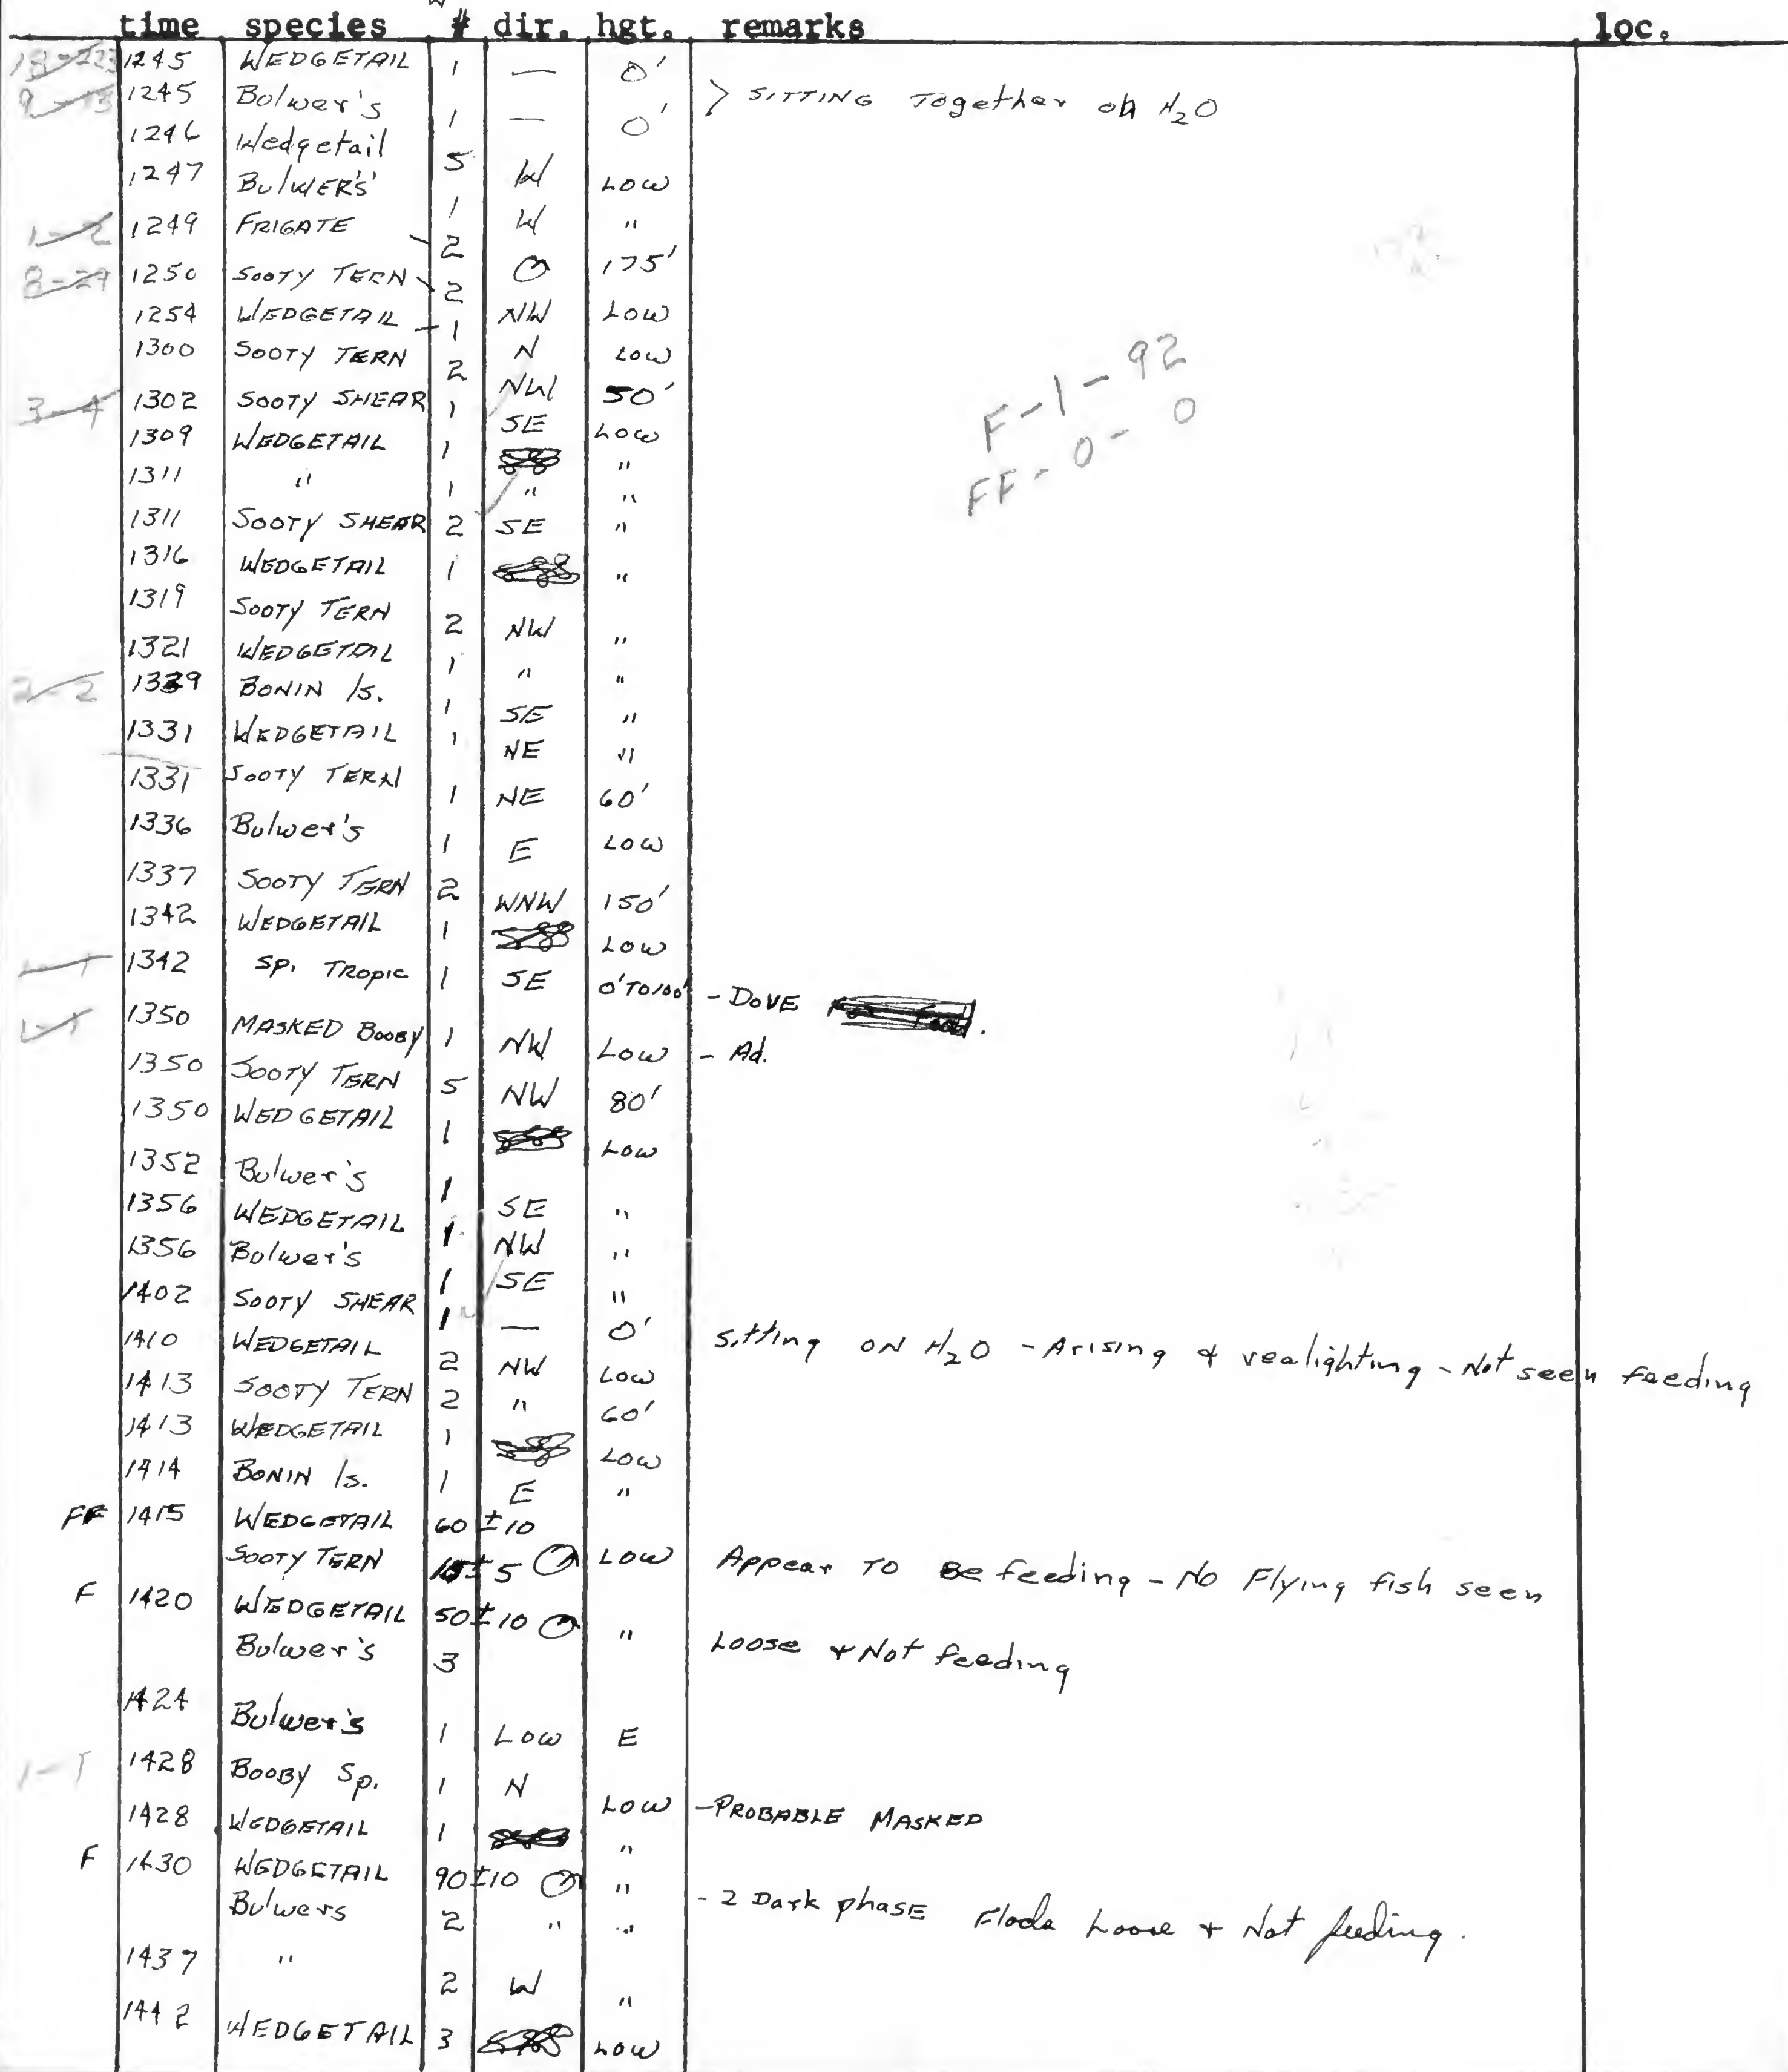 time species # dir. hgt. remarks loc.
1245 WEDGETAIL 1 — 0'
1245 Bulwer's 1 — 0' > SITTING Together on H2O
1246 Wedgetail 5 W LOW
1247 BULWER'S 1 W "
1-2 1249 FRIGATE 2 O 175'
1250 SOOTY TERN 2 NW LOW
1254 WEDGETAIL 1 N LOW
1300 SOOTY TERN 2 NW 50'
3-4 1302 SOOTY SHEAR 1 SE LOW
1309 WEDGETAIL 1 "
1311 " 1 " "
1311 SOOTY SHEAR 2 SE "
1316 WEDGETAIL 1 "
1319 SOOTY TERN 2 NW "
1321 WEDGETAIL 1 " "
2-2 1329 BONIN Is. 1 SE "
1331 WEDGETAIL 1 NE "
1331 SOOTY TERN 1 NE 60'
1336 Bulwer's 1 E LOW
1337 SOOTY TERN 2 WNW 150'
1342 WEDGETAIL 1 LOW
1-1 1342 SP. TROPIC 1 SE 0'TO100' - DOVE
1-1 1350 MASKED BOOBY 1 NW LOW - Ad.
1350 SOOTY TERN 5 NW 80'
1350 WEDGETAIL 1 LOW
1352 Bulwer's 1 SE "
1356 WEDGETAIL 1 NW "
1356 Bulwer's 1 SE "
1402 SOOTY SHEAR 1 — 0' Sitting ON H2O - Arising & realighting - Not seen feeding
1410 WEDGETAIL 2 NW LOW
1413 SOOTY TERN 2 " 60'
1413 WEDGETAIL 1 LOW
1414 BONIN Is. 1 E "
FF 1415 WEDGETAIL 60 ±10
SOOTY TERN 15±5 LOW Appear TO Be feeding - No Flying fish seen
F 1420 WEDGETAIL 50±10 "
Bulwer's 3 Loose & Not feeding
1424 Bulwer's 1 LOW E
1-1 1428 BOOBY Sp. 1 N LOW - PROBABLE MASKED
1428 WEDGETAIL 1 "
F 1430 WEDGETAIL 90±10 " - 2 Dark phase
Bulwers 2 " " Loose & Not feeding.
1437 " 2 W "
1442 WEDGETAIL 3 LOW
F-1-92
FF-0-0